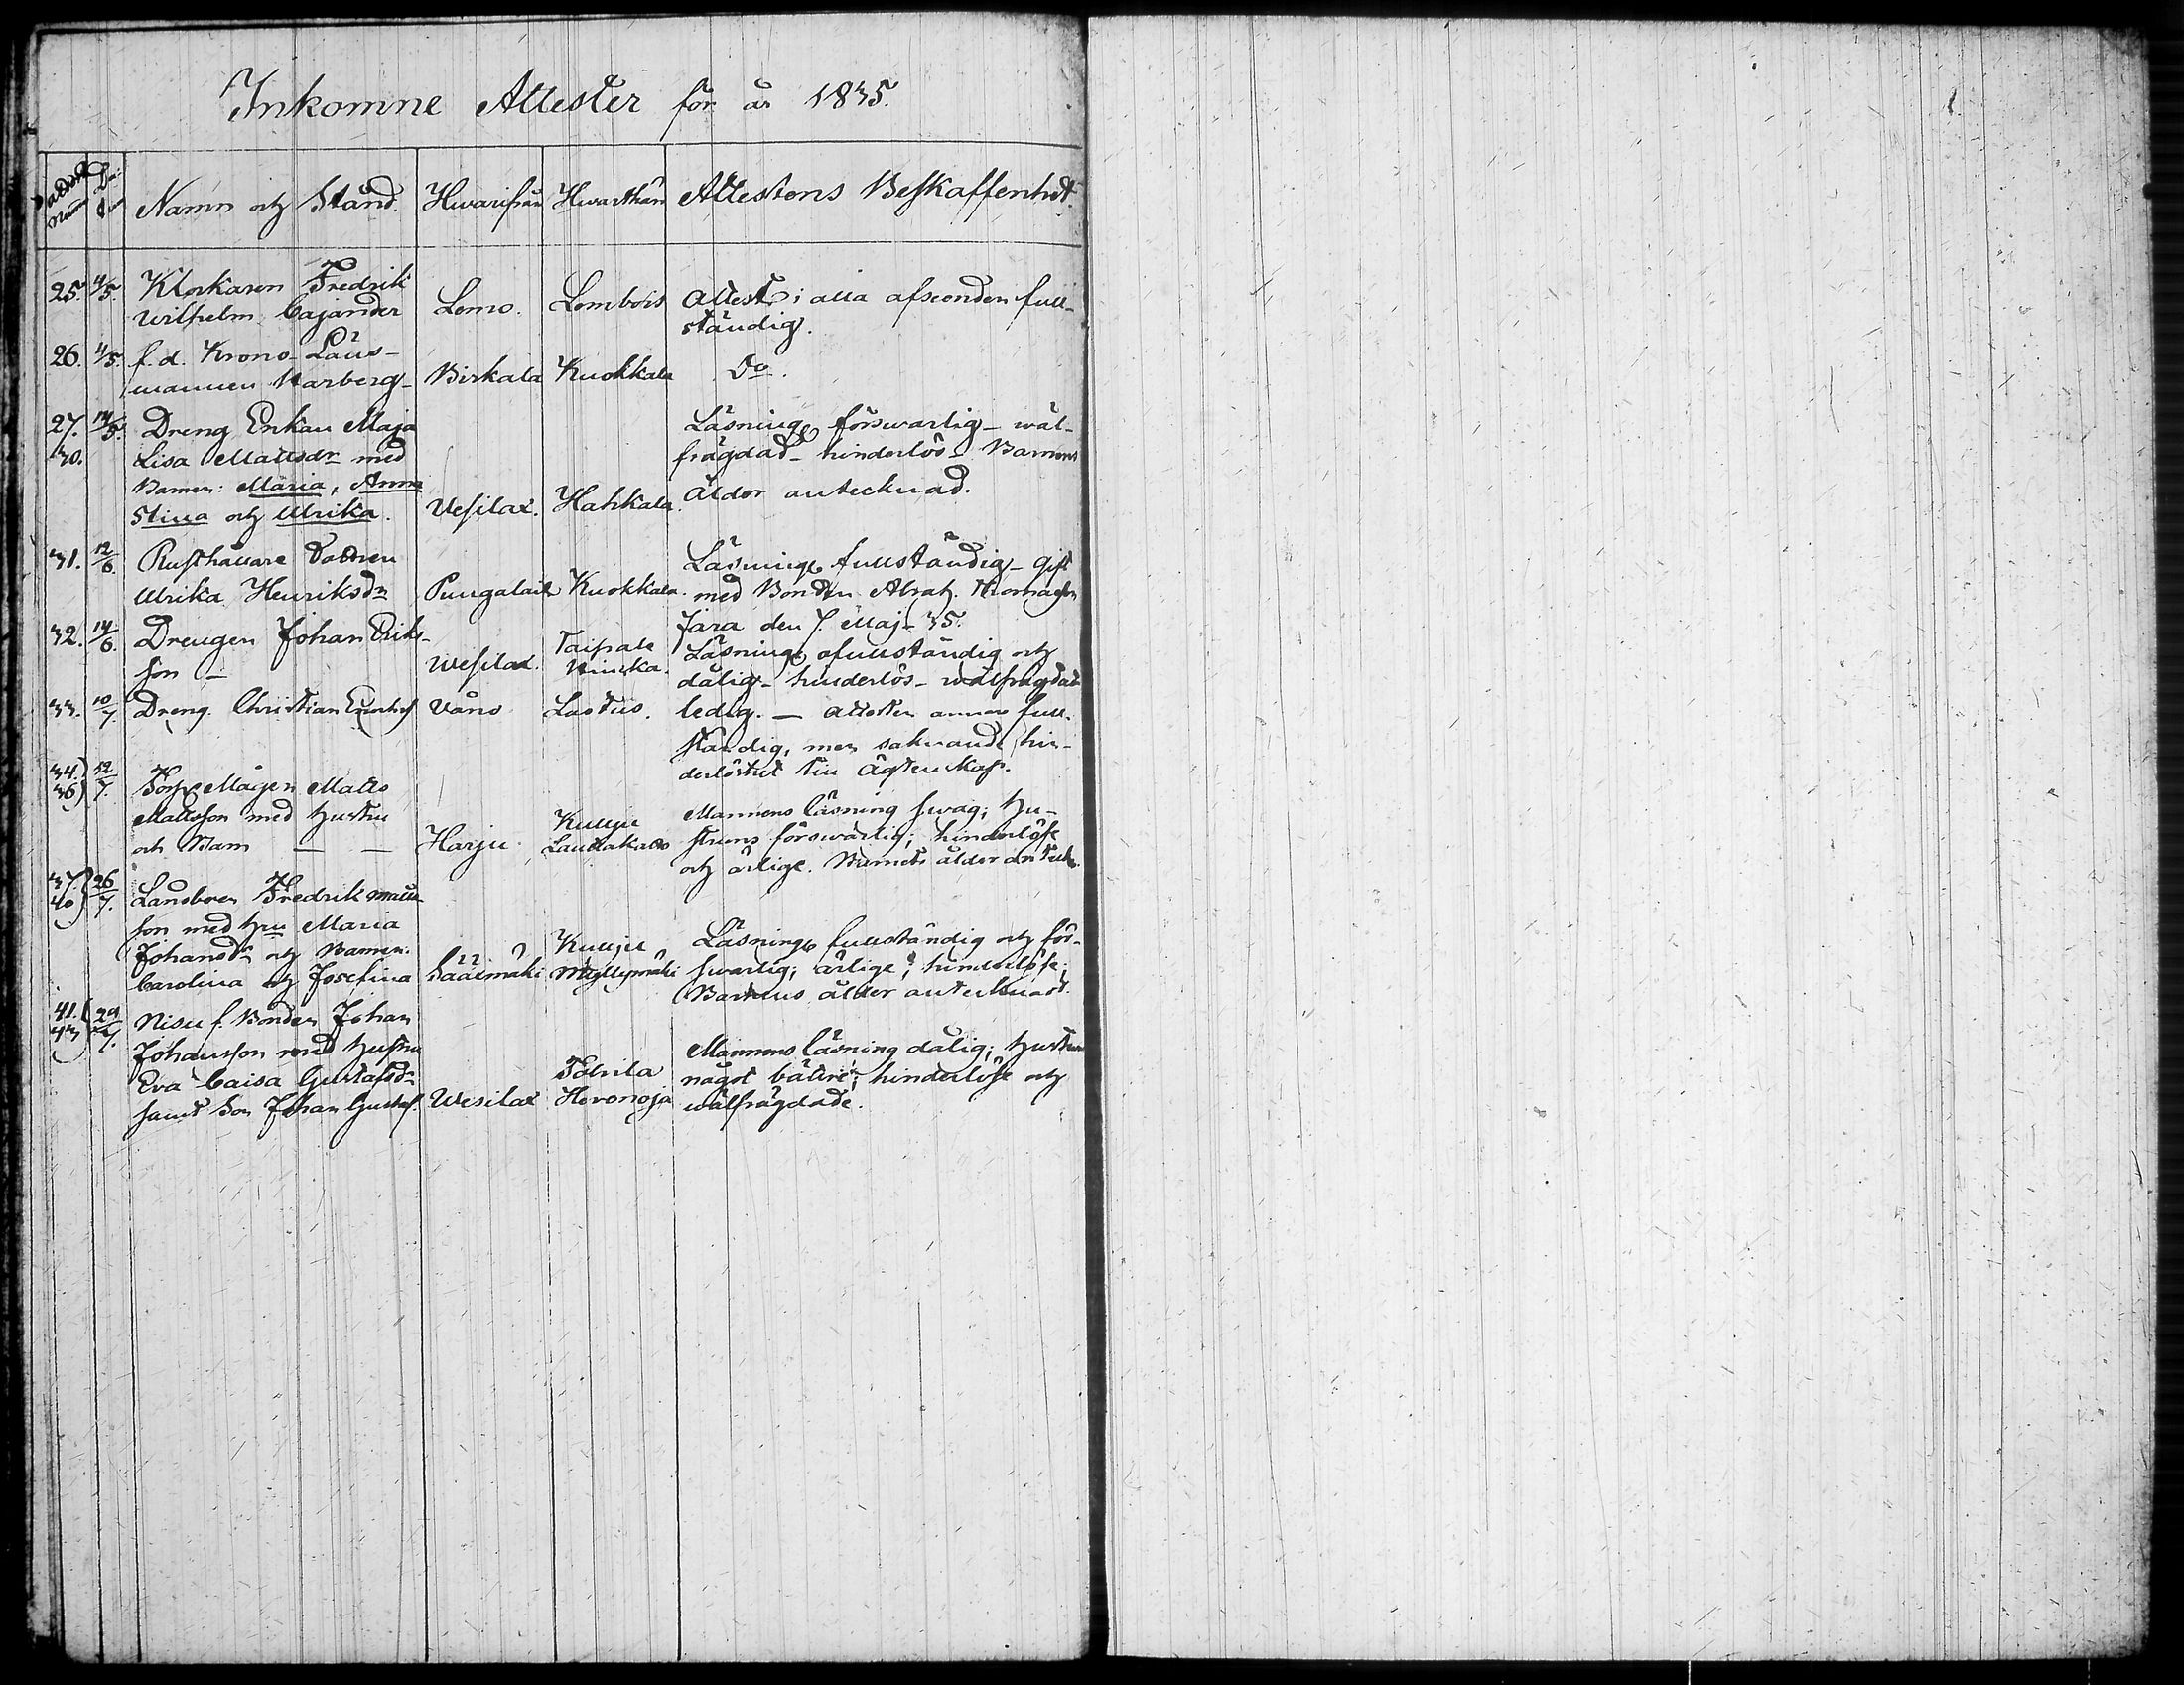 Inkomne Attester för år 1835.
Namn och Stånd. Hvarifrån Hvarthän Attestens Beskaffenhet.
25. 4/5. Klockaren Fredrik
Wilhelm Cajander Lemo. Lembois Attest i alla afseenden full-
ständig.
26. 4/5. f.d. Krono-Läns-
mannen Birkala Kuokkala Do.
27. 14/5. Dreng Enkan Maja
30. Lisa Mattsdr med
Barnen: Maria, Anna
Stina och Ulrika. Vesilax. Hahkala.
Läsning försvarlig - väl-
frägdad - hinderlös - Barnens
ålder antecknad.
31. 12/6. Rusthållare Dottren
Ulrika Henriksdr Pungalait Kuokkala.
Läsning fullständig - Gift
med Bonden Abrah. Thomasson
Jara den 7. Maj 35.
32. 14/6. Drengen Johan Eriks-
son - Wesilax. Taipale
Läsning ofullständig och
dålig - hinderlös - välfrägdad
33. 10/7. Dreng. Christian Våno Lastus. ledig. - Attesten annars full-
ständig, men saknande hin-
derlöshet till Ägtenskap.
34. 36) 12/7. Matts
Mattsson med hustru
och Barn — — Harju. Kulju
Lauttakatto
Mannens läsning svag; hu-
struns försvarlig; hinderlöse
och ärlige. Barnets ålder anteckn.
37. 40) 26/7. Fredrik Matts-
son med Hu Maria
Johansdr och Barnen:
Carolina och Josefina Sääksmäki Kulju
Myllymäki
Läsning fullständig och för-
svarlig; ärlige; hinderlöse;
Barnens ålder antecknad.
41. 43) 29/7. Nisu f. Bonden Johan
Johansson med hustru
Eva Caisa Gustafsdr
samt Son Johan Gustaf. Wesilax
Heronoja
Mannens läsning dålig; hustruns
något bättre; hinderlöse och
välfrägdade.